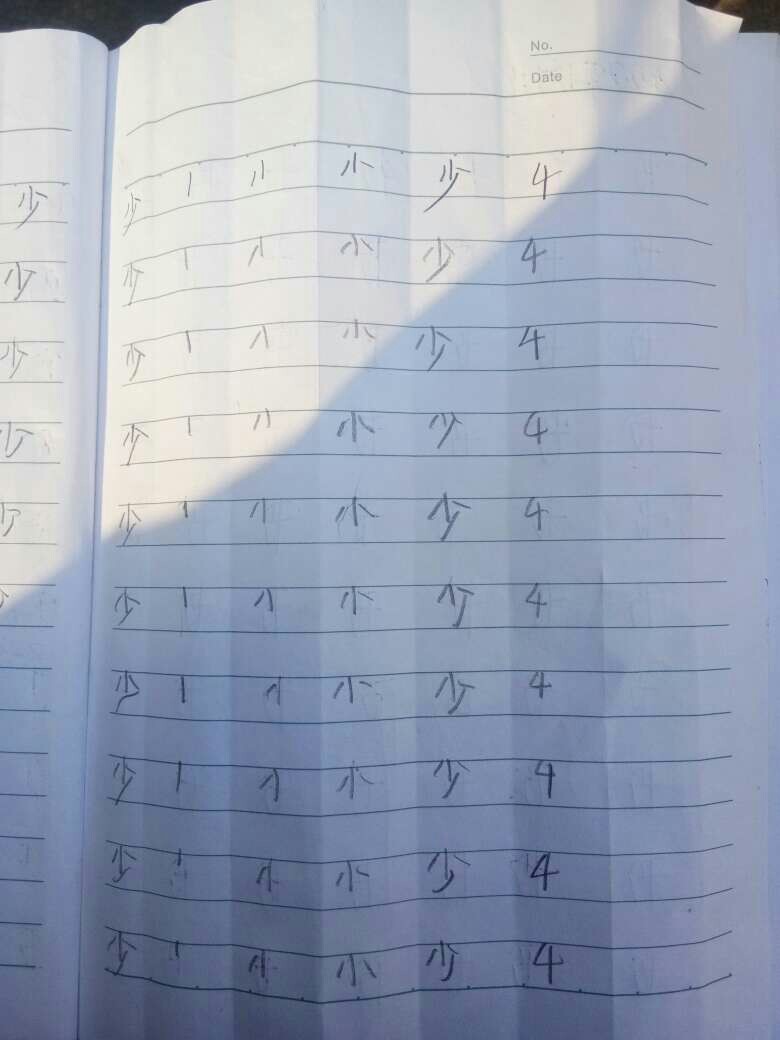 No.
Date
少 丨 小 少 4
少 丨 小 少 4
少 丨 小 少 4
少 丨 小 少 4
少 丨 小 少 4
少 丨 小 少 4
少 丨 小 少 4
少 丨 小 少 4
少 丨 小 少 4
少 丨 小 少 4
少
少
少
少
少